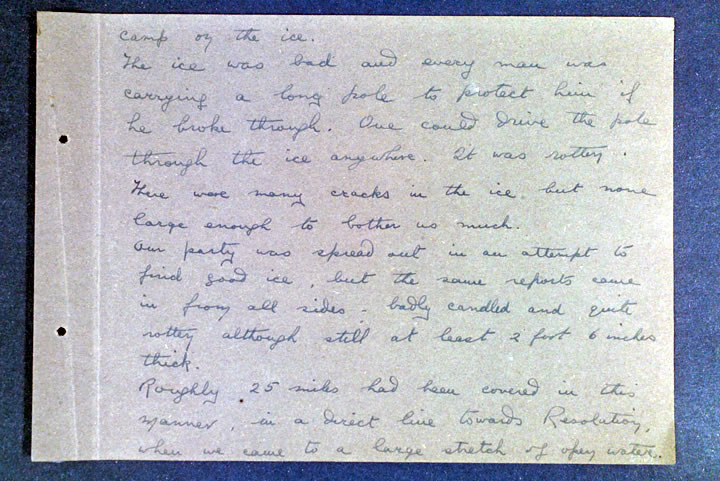 camp on the ice.
The ice was bad and every man was
carrying a long pole to protect him if
he broke through. One could drive the pole
through the ice anywhere. It was rotten.
There were many cracks in the ice, but none
large enough to bother us much.
Our party was spread out in an attempt to
find good ice, but the same reports came
in from all sides - badly candled and quite
rotten although still at least 2 foot 6 inches
thick.
Roughly 25 miles had been covered in this
manner, in a direct line towards Resolution,
when we came to a large stretch of open water.